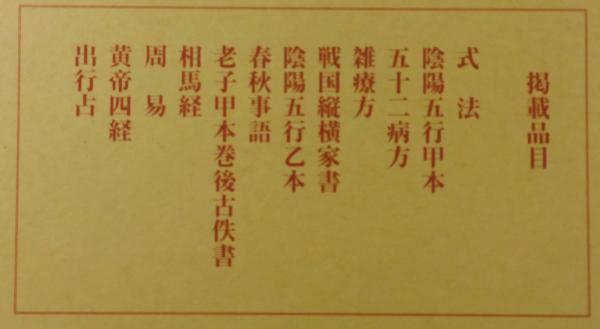 掲載品目
式法
陰陽五行甲本
五十二病方
雑療方
戦国縦横家書
陰陽五行乙本
春秋事語
老子甲本巻後古佚書
相馬経
周易
黄帝四経
出行占